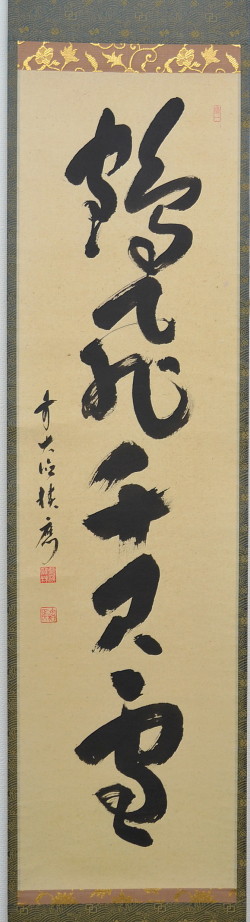 鶴飛千尺雪
前大徳